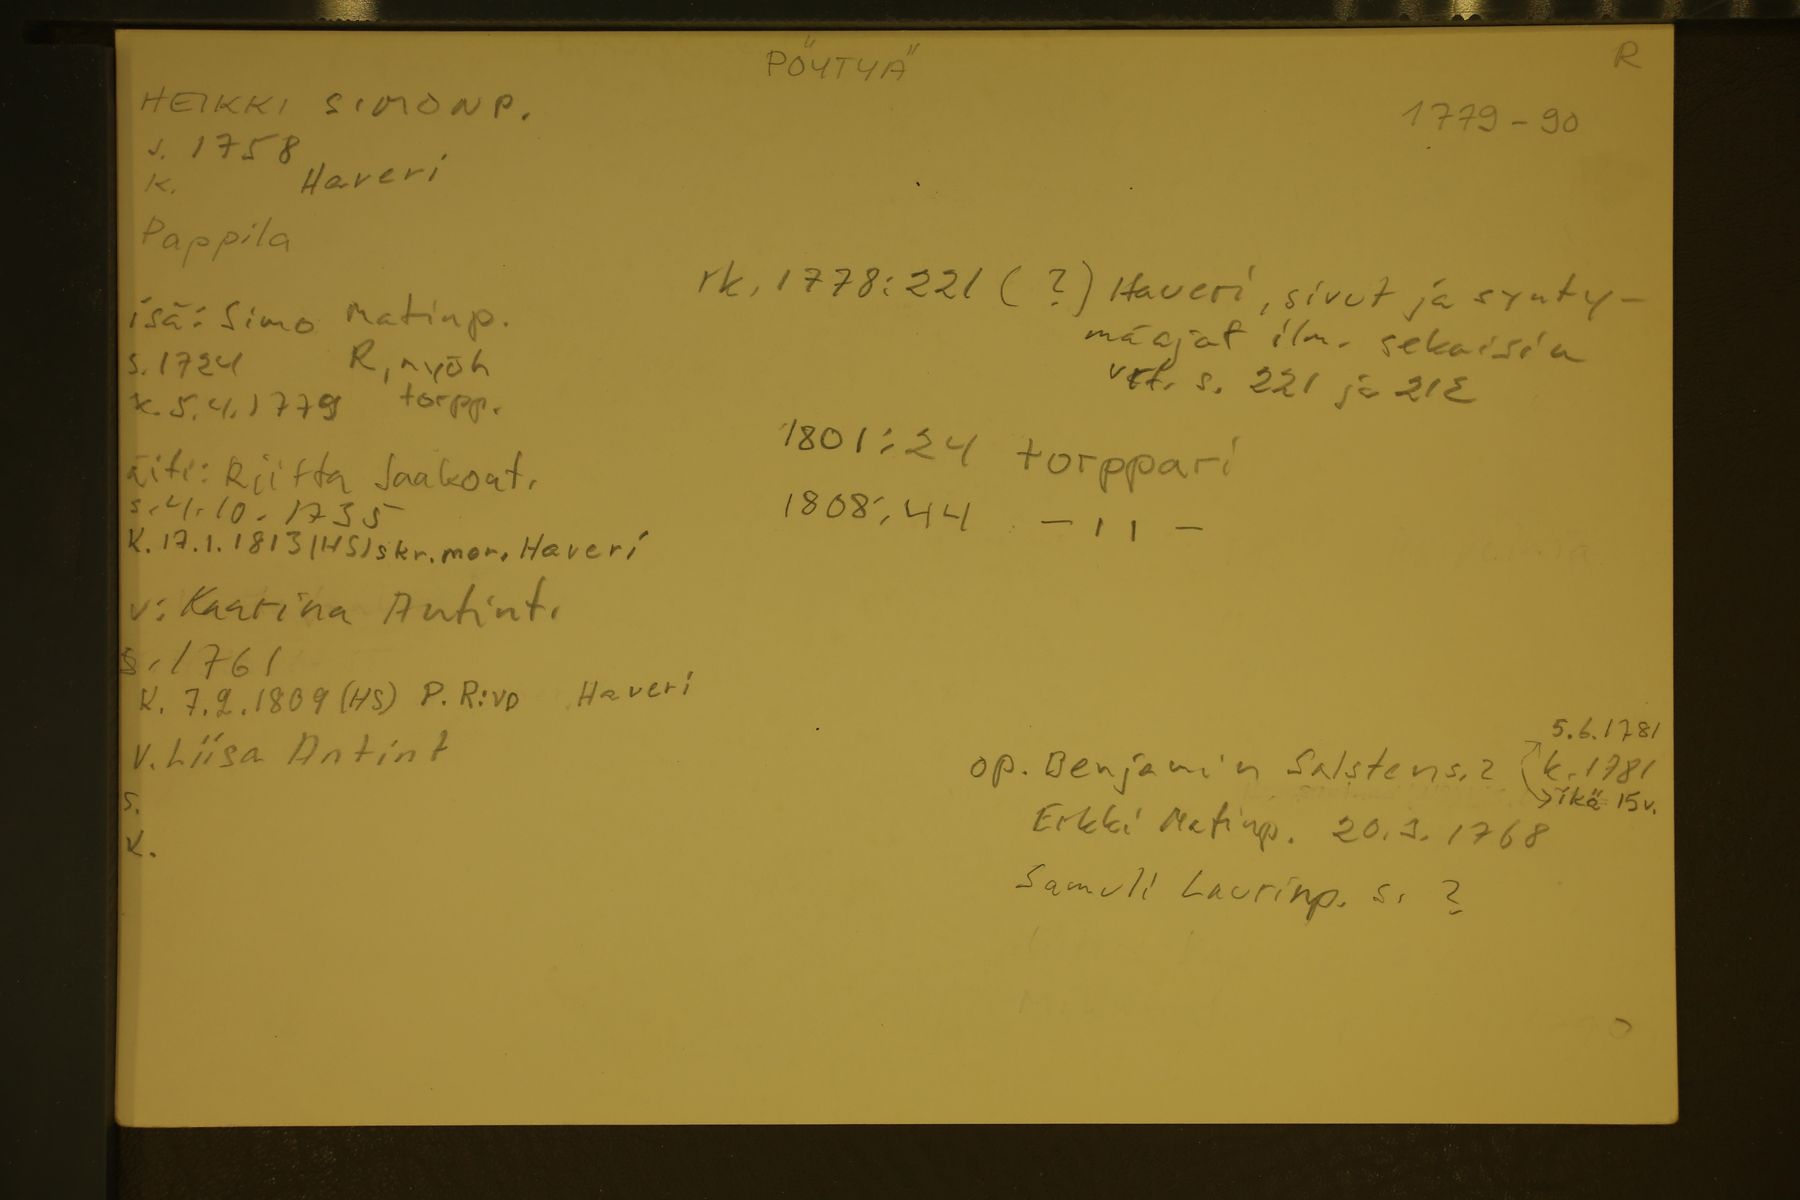 PÖYTYÄ
R
HEIKKI SIMONP.
1779-90
s. 1758
k. Haveri
Pappila
rk. 1778:221 (?) Haveri, sivut ja synty-
määjat ilm. sekaisin
vrt. s. 221 ja 212
isä: Simo Matinp.
s. 1724 R, myöh
k. 5.4.1779 torpp.
1801:24 torppari
äiti: Riitta Jaakont.
s. 4.10.1735
1808:44 -11-
k. 17.1.1813 (HS) skr. mor. Haveri
v: Kaarina Antint.
s. 1761
k. 7.2.1809 (HS) P. R:vo Haveri
v. Liisa Antint
s.
k.
5.6.1781
op. Benjamin Salstens. ? k. 1781
ikä 15v.
Erkki Matinp. 20.3.1768
Samuli Laurinp. s. ?